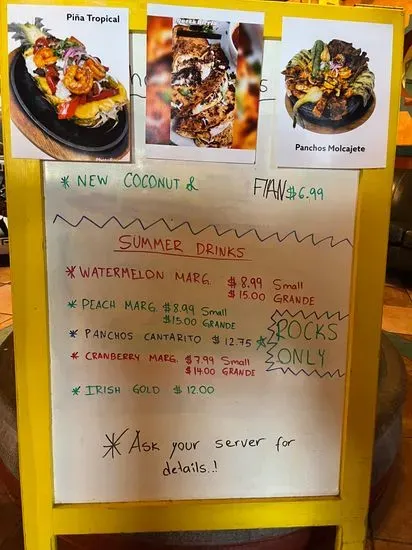 Piña Tropical
Panchos Molcajete
* NEW COCONUT & FlAN $6.99
SUMMER DRINKS
* WATERMELON MARG. $8.99 Small
$15.00 GRANDE
* PEACH MARG. $8.99 Small
$15.00 GRANDE
* PANCHOS CANTARITO $12.75 *
ROCKS
ONLY
* CRANBERRY MARG. $7.99 Small
$14.00 GRANDE
* IRISH GOLD $12.00
* Ask your server for
details.!